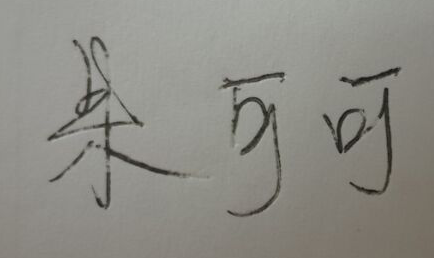 朱可可